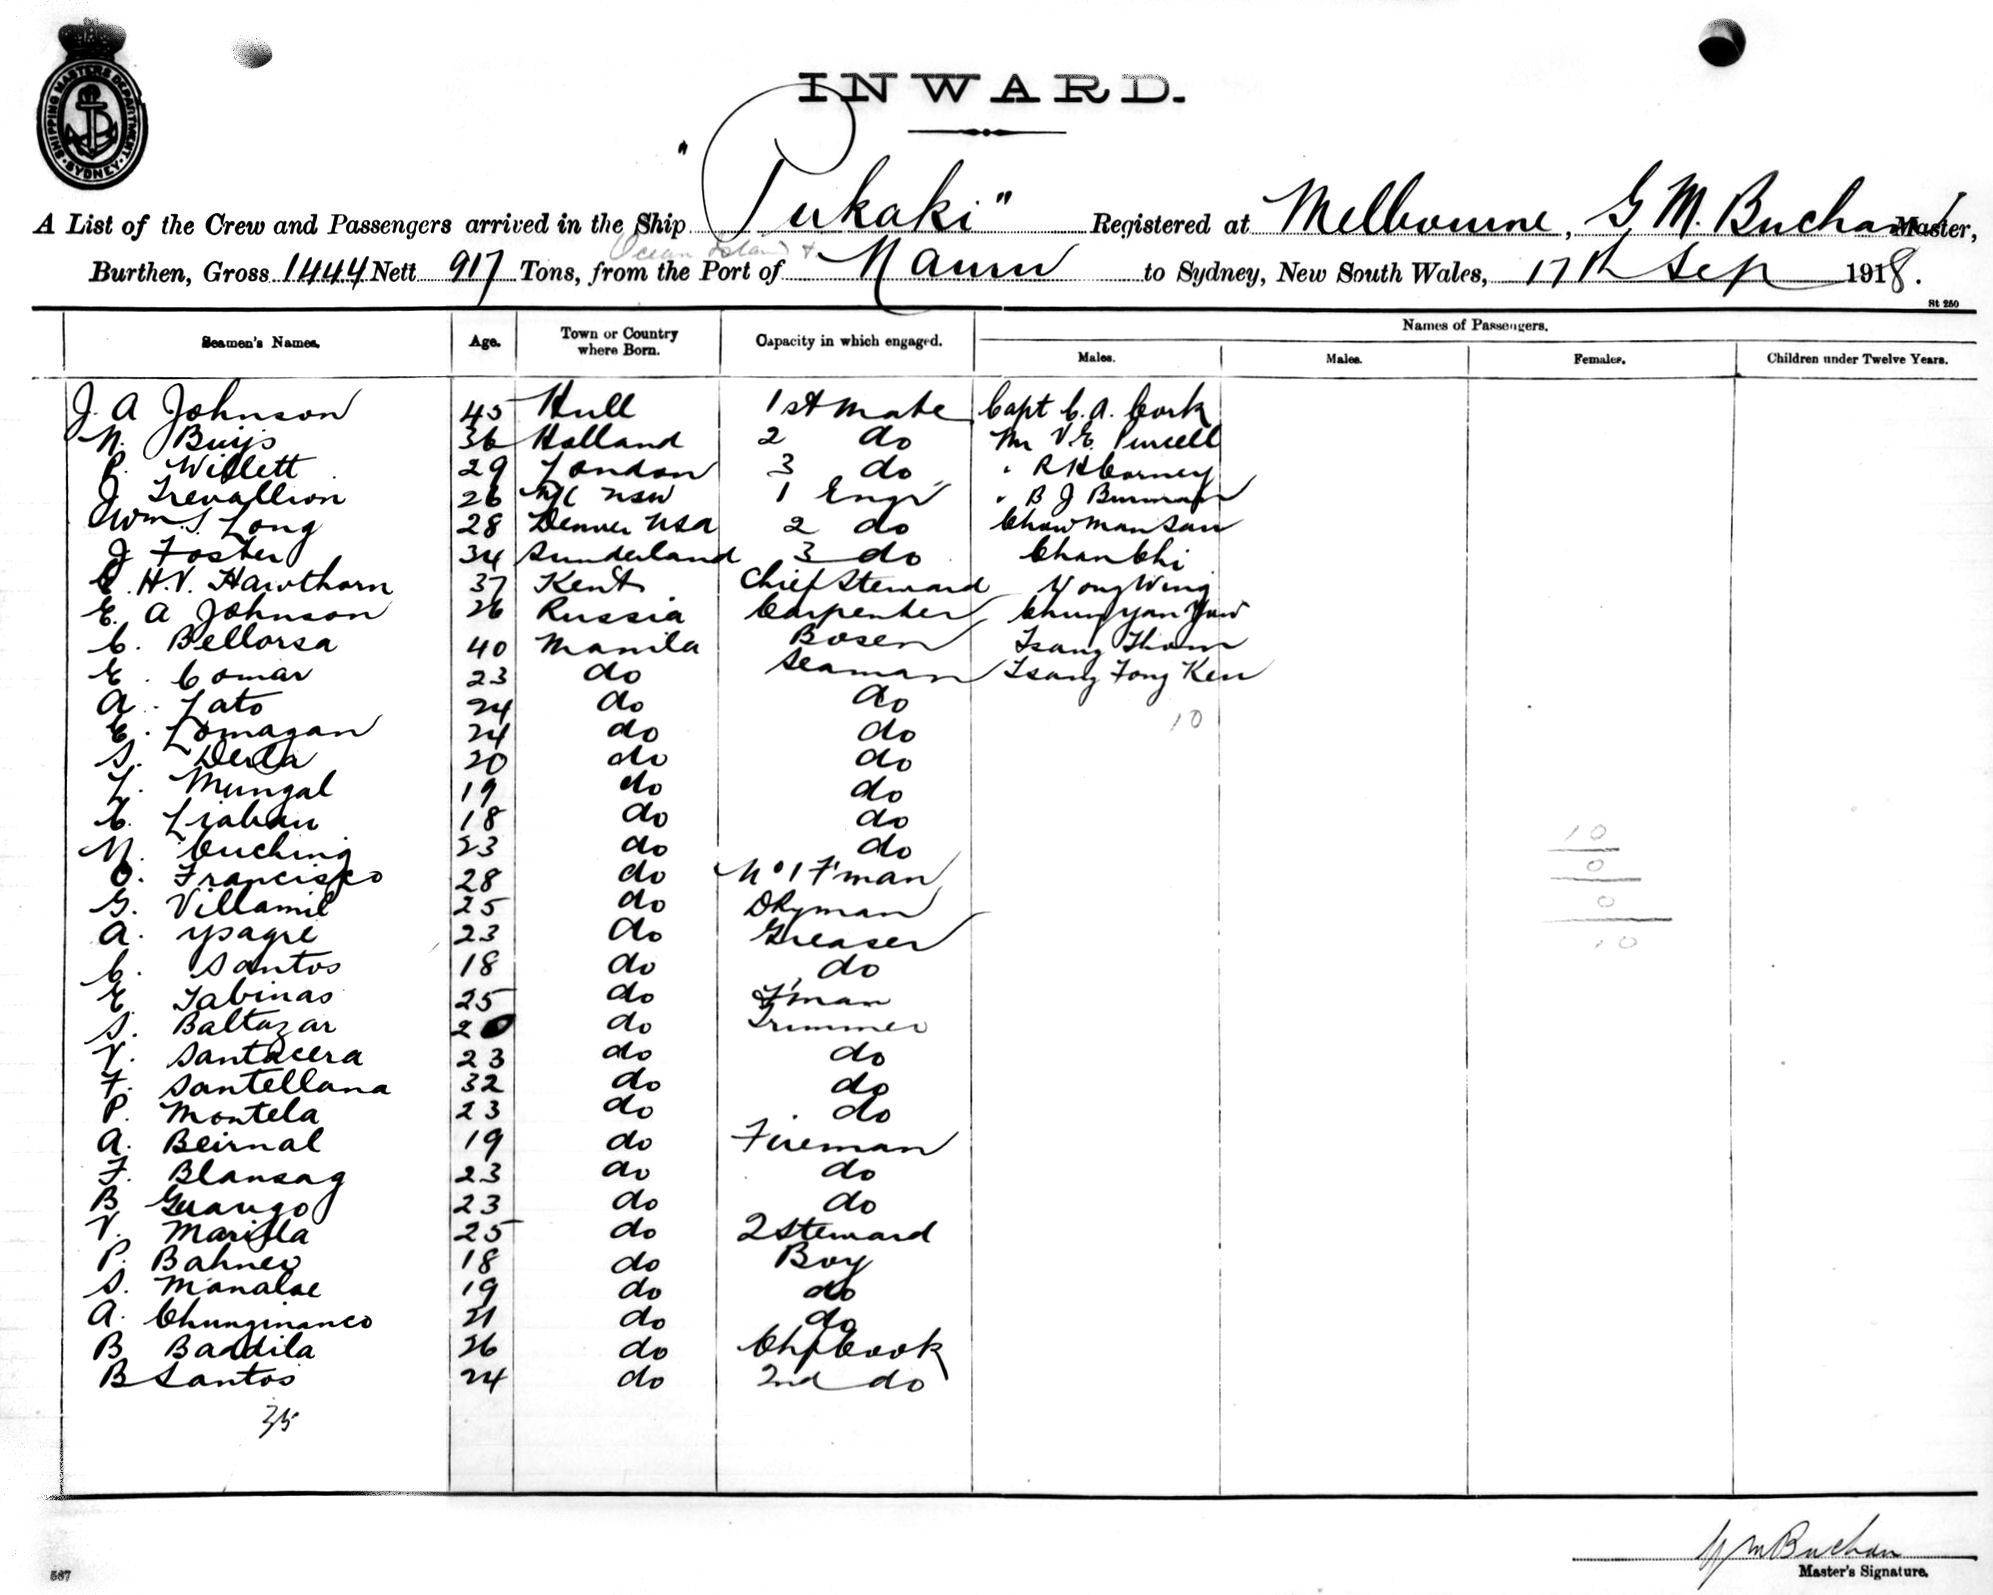 SHIPPING MASTERS DEPARTMENT SYDNEY
INWARD.
A List of the Crew and Passengers arrived in the Ship "Pukaki" Registered at Melbourne, G M. Buchan Master,
Ocean Island &
Burthen, Gross 1444 Nett 917 Tons, from the Port of Nauru to Sydney, New South Wales, 17th Sep 1918.
St 250
Seamen's Names. Age. Town or Country where Born. Capacity in which engaged. Names of Passengers.
Males. Males. Females. Children under Twelve Years.
J. A Johnson 45 Hull 1st mate Capt C. A. Cork
N. Buijs 36 Holland 2 do Mr V.E. Purcell
P. Willett 29 London 3 do " R H Carney
J Trevallion 26 NSW 1 Engr " B J Burman
Wm. S. Long 28 Denver USA 2 do Chow Man San
J Foster 34 Sunderland 3 do Chan Chi
C. H.V. Hawthorn 37 Kent Chief Steward Wong Wing
E. A Johnson 26 Russia Carpenter Chun Yan Yow
C. Bellorsa 40 Manila Bosen Tsang Thom
E. Comar 23 do Seaman Tsang Fong Ken
A. Lato 24 do do
10
E. Lomagan 24 do do
S. Derla 20 do do
L. Mungal 19 do do
C. Liaban 18 do do
10
N. Cuching 23 do do
0
O. Francisco 28 do No 1 F'man
G. Villamil 25 do Dkyman
0
A. Ypagre 23 do Greaser
10
C. Santos 18 do do
E. Tabinas 25 do F'man
S. Baltazar 20 do Trimmer
V. Santacera 23 do do
F. Santellana 32 do do
P. Montela 23 do do
A. Beirnal 19 do Fireman
F. Blansag 23 do do
B Guango 23 do do
V. Marilla 25 do 2 Steward
P. Bahneo 18 do Boy
S. Manalae 19 do do
A. Chunginanco 21 do do
B Baddila 26 do Chf Cook
B Santos 24 do 2nd do
35
G M Buchan
Master's Signature.
567